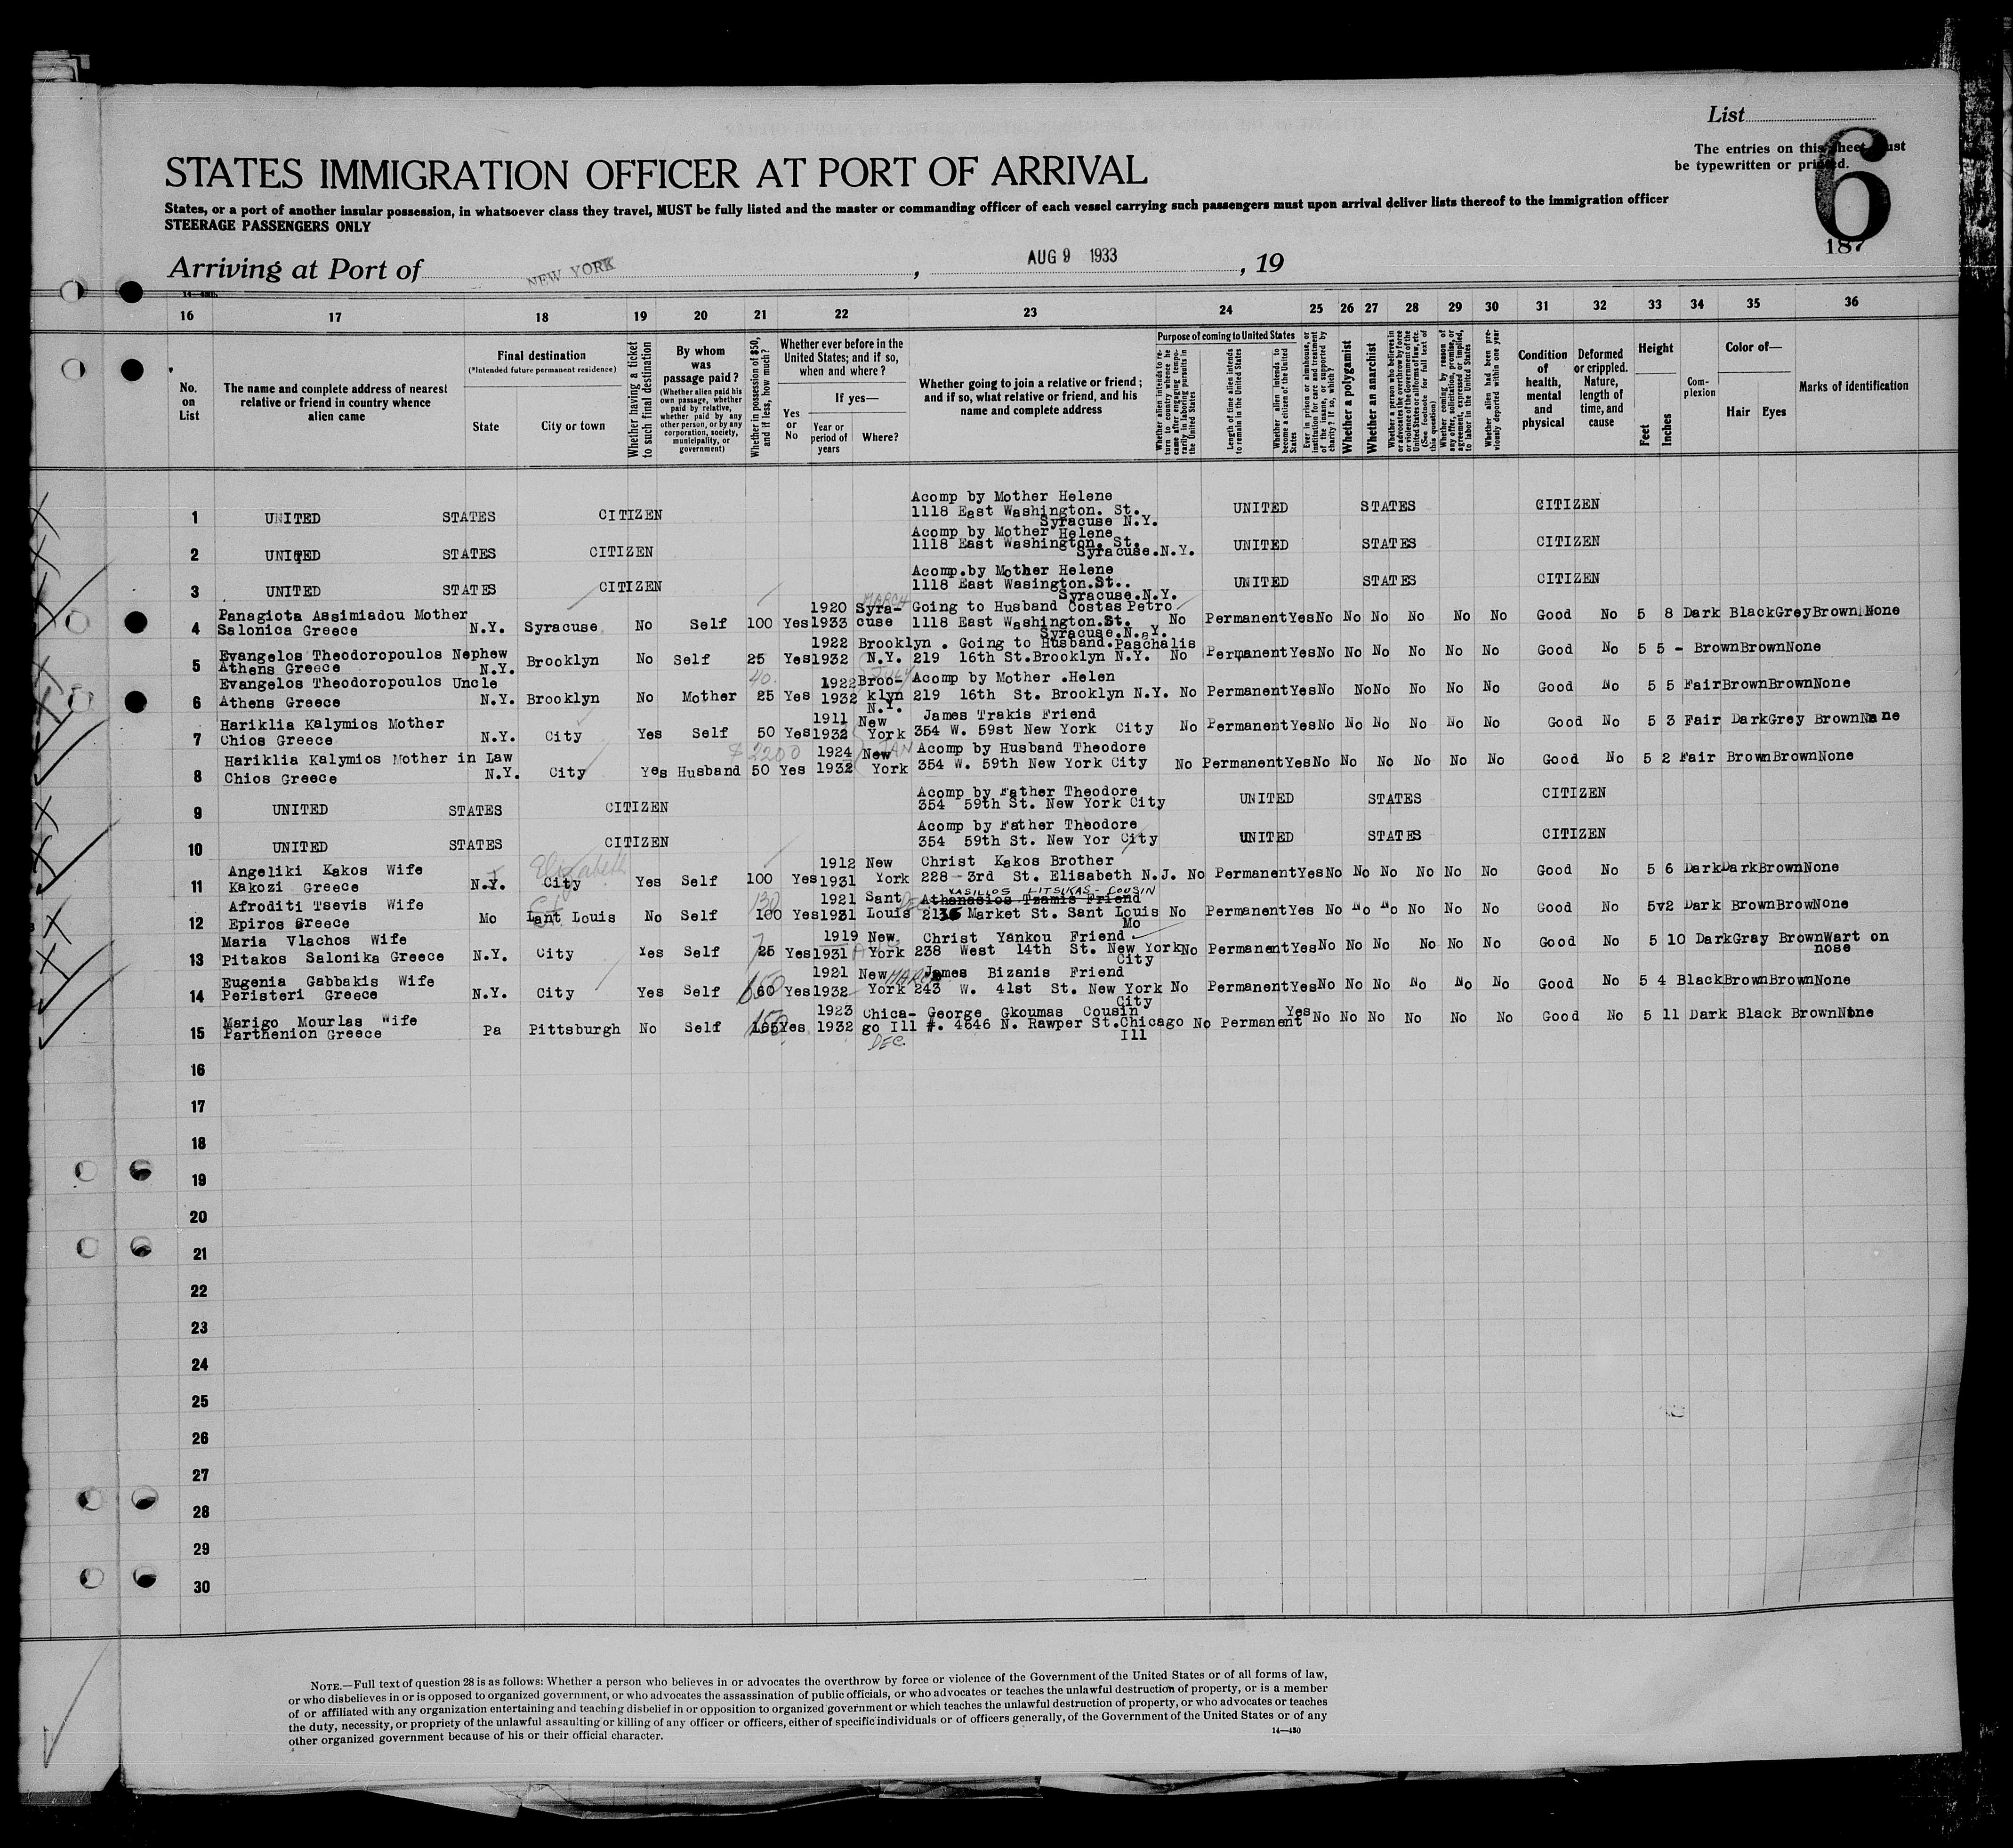 List
The entries on this sheet must
be typewritten or printed.
6
187
STATES IMMIGRATION OFFICER AT PORT OF ARRIVAL
States, or a port of another insular possession, in whatsoever class they travel, MUST be fully listed and the master or commanding officer of each vessel carrying such passengers must upon arrival deliver lists thereof to the immigration officer
STEERAGE PASSENGERS ONLY
Arriving at Port of NEW YORK, AUG 9 1933, 19
14—480
16 17 18 19 20 21 22 23 24 25 26 27 28 29 30 31 32 33 34 35 36
No. on List
The name and complete address of nearest relative or friend in country whence alien came
Final destination
(*Intended future permanent residence)
State
City or town
Whether having a ticket to such final destination
By whom was passage paid?
(Whether alien paid his own passage, whether paid by relative, whether paid by any other person, or by any corporation, society, municipality, or government)
Whether in possession of $50, and if less, how much?
Whether ever before in the United States; and if so, when and where?
Yes or No
If yes—
Year or period of years
Where?
Whether going to join a relative or friend; and if so, what relative or friend, and his name and complete address
Purpose of coming to United States
Whether alien intends to return to country whence he came after engaging temporarily in laboring pursuits in the United States
Length of time alien intends to remain in the United States
Whether alien intends to become a citizen of the United States
Ever in prison or almshouse, or institution for care and treatment of the insane, or supported by charity? If so, which?
Whether a polygamist
Whether an anarchist
Whether a person who believes in or advocates the overthrow by force or violence of the Government of the United States or all forms of law, etc. (See footnote for full text of this question)
Whether coming by reason of any offer, solicitation, promise, or agreement, expressed or implied, to labor in the United States
Whether alien had been previously deported within one year
Condition of health, mental and physical
Deformed or crippled. Nature, length of time, and cause
Height
Feet
Inches
Complexion
Color of—
Hair Eyes
Marks of identification
Acomp by Mother Helene
1 UNITED STATES CITIZEN 1118 East Washington. St. UNITED STATES CITIZEN
Syracuse N.Y.
Acomp by Mother Helene
2 UNITED STATES CITIZEN 1118 East Washington. St. UNITED STATES CITIZEN
Syracuse.N.Y.
Acomp.by Mother Helene
3 UNITED STATES CITIZEN 1118 East Wasington.St.. UNITED STATES CITIZEN
Syracuse.N.Y.
MARCH
Panagiota Assimiadou Mother 1920 Syra- Going to Husband Costas Petro
4 Salonica Greece N.Y. Syracuse No Self 100 Yes 1933 cuse 1118 East Washington.St. No Permanent Yes No No No No No No Good No 5 8 Dark Black Grey Brown None
Syracuse.N.Y.
1922 Brooklyn . Going to Husband.Paschalis
5 Evangelos Theodoropoulos Nephew
Athens Greece N.Y. Brooklyn No Self 25 Yes 1932 N.Y. 219 16th St.Brooklyn N.Y. No Permanent Yes No No No No No No Good No 5 5 - Brown Brown None
40. JULY
Evangelos Theodoropoulos Uncle 1922 Broo- Acomp by Mother .Helen
6 Athens Greece N.Y. Brooklyn No Mother 25 Yes 1932 klyn 219 16th St. Brooklyn N.Y. No Permanent Yes No No No No No No Good No 5 5 Fair Brown Brown None
N.Y.
Hariklia Kalymios Mother 1911 New James Trakis Friend
7 Chios Greece N.Y. City Yes Self 50 Yes 1932 York 354 W. 59st New York City No Permanent Yes No No No No No No Good No 5 3 Fair Dark Grey Brown None
$2200 JAN
Hariklia Kalymios Mother in Law 1924 New Acomp by Husband Theodore
8 Chios Greece N.Y. City Yes Husband 50 Yes 1932 York 354 W. 59th New York City No Permanent Yes No No No No No No Good No 5 2 Fair Brown Brown None
Acomp by Father Theodore
9 UNITED STATES CITIZEN 354 59th St. New York City UNITED STATES CITIZEN
Acomp by Father Theodore
10 UNITED STATES CITIZEN 354 59th St. New Yor City UNITED STATES CITIZEN
Elizabeth
Angeliki Kakos Wife 1912 New Christ Kakos Brother
11 Kakozi Greece N.Y. City Yes Self 100 Yes 1931 York 228 - 3rd St. Elisabeth N.J. No Permanent Yes No No No No No No Good No 5 6 Dark Dark Brown None
VASILLOS LITSIKAS - COUSIN
Afroditi Tsevis Wife 130 1921 Sant DEC Athanasios Tzamis Friend
12 Epiros Greece Mo St. Louis No Self 100 Yes 1931 Louis 2135 Market St. Sant Louis No Permanent Yes No No No No No No Good No 5 2 Dark Brown Brow None
Mo
Maria Vlachos Wife 1919 New Christ Yankou Friend
13 Pitakos Salonika Greece N.Y. City Yes Self 25 Yes 1931 York 238 West 14th St. New York No Permanent Yes No No No No No No Good No 5 10 Dark Gray Brown Wart on nose
City
Eugenia Gabbakis Wife 1921 New MARCH James Bizanis Friend
14 Peristeri Greece N.Y. City Yes Self 60 Yes 1932 York 243 W. 41st St. New York No Permanent Yes No No No No No No Good No 5 4 Black Brown Brown None
City
Marigo Mourlas Wife 150 1923 Chica- George Gkoumas Cousin
15 Parthenion Greece Pa Pittsburgh No Self Yes 1932 go Ill #. 4646 N. Rawper St.Chicago No Permanent Yes No No No No No No Good No 5 11 Dark Black Brown None
DEC. Ill
16
17
18
19
20
21
22
23
24
25
26
27
28
29
30
NOTE.—Full text of question 28 is as follows: Whether a person who believes in or advocates the overthrow by force or violence of the Government of the United States or of all forms of law,
or who disbelieves in or is opposed to organized government, or who advocates the assassination of public officials, or who advocates or teaches the unlawful destruction of property, or is a member
of or affiliated with any organization entertaining and teaching disbelief in or opposition to organized government or which teaches the unlawful destruction of property, or who advocates or teaches
the duty, necessity, or propriety of the unlawful assaulting or killing of any officer or officers, either of specific individuals or of officers generally, of the Government of the United States or of any
other organized government because of his or their official character.
14—480